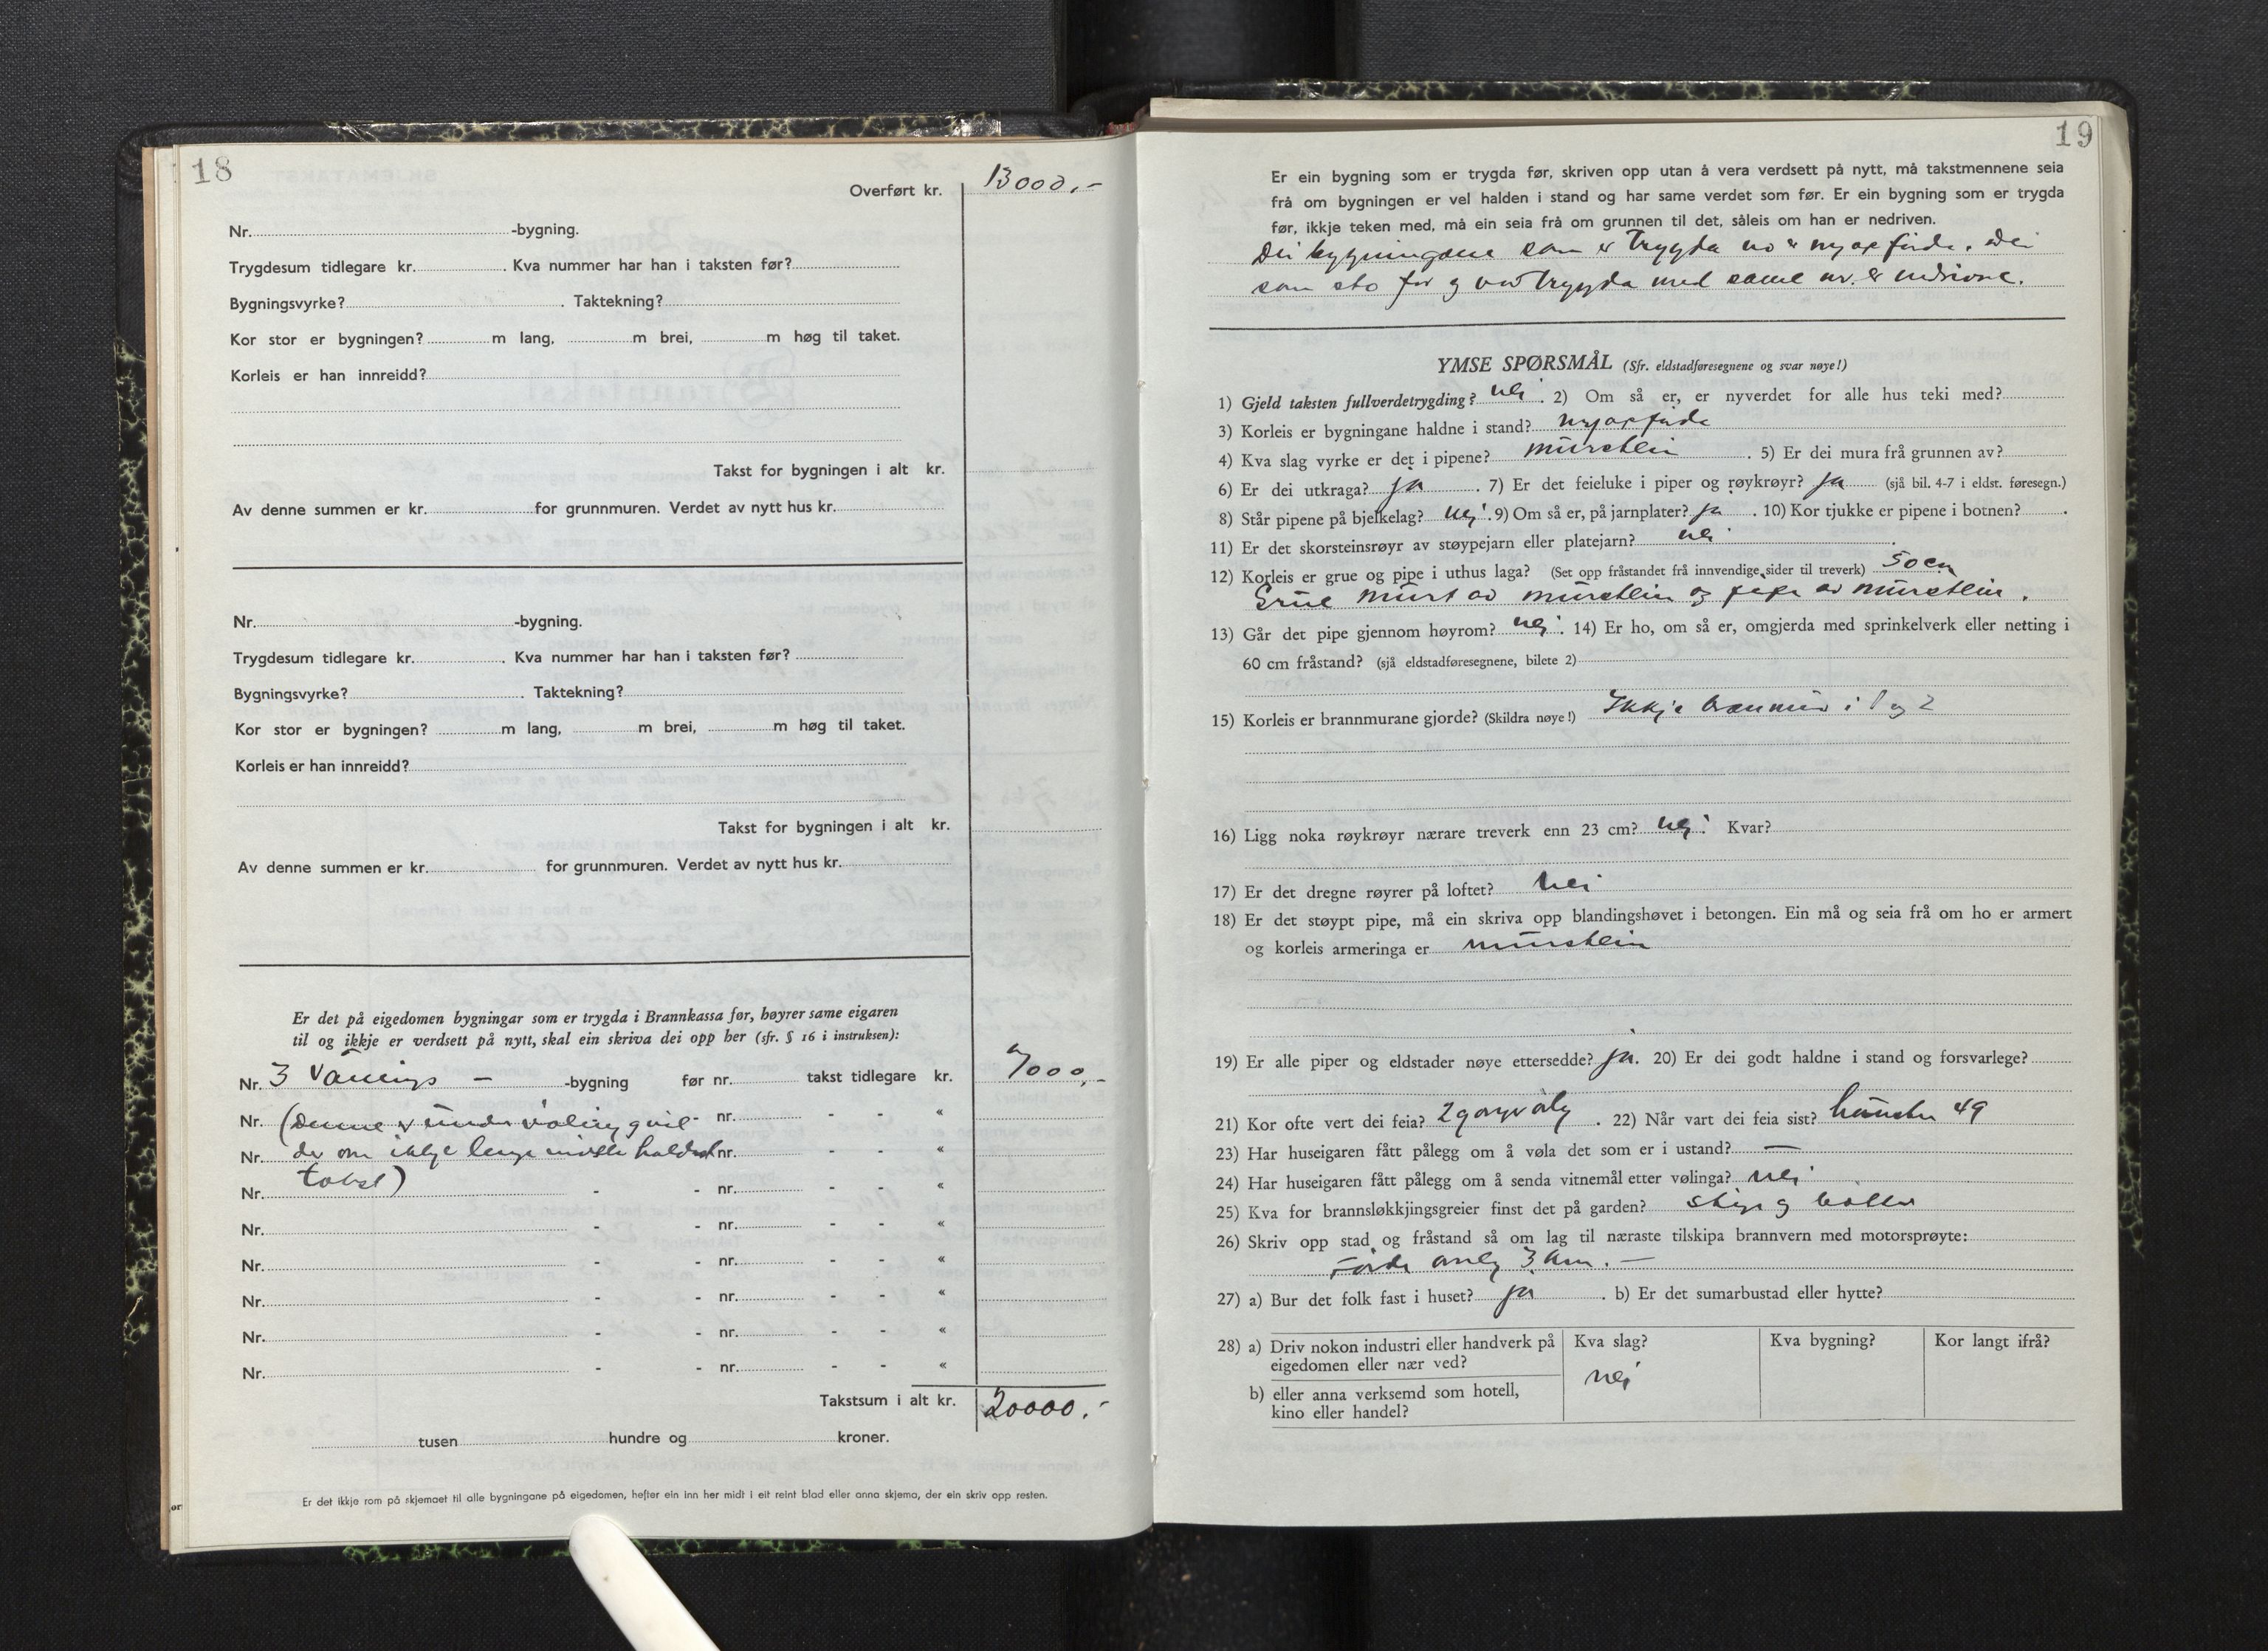 18
Overført kr. 13000,-
Nr. -bygning.
Trygdesum tidlegare kr. . Kva nummer har han i taksten før?
Bygningsvyrke? . Taktekning?
Kor stor er bygningen? m lang, m brei, m høg til taket.
Korleis er han innreidd?
Takst for bygningen i alt kr.
Av denne summen er kr. for grunnmuren. Verdet av nytt hus kr.
Nr. -bygning.
Trygdesum tidlegare kr. . Kva nummer har han i taksten før?
Bygningsvyrke? . Taktekning?
Kor stor er bygningen? m lang, m brei, m høg til taket.
Korleis er han innreidd?
Takst for bygningen i alt kr.
Av denne summen er kr. for grunnmuren. Verdet av nytt hus kr.
Er det på eigedomen bygningar som er trygda i Brannkassa før, høyrer same eigaren
til og ikkje er verdsett på nytt, skal ein skriva dei opp her (sfr. § 16 i instruksen):
Nr. 3 Vånings - -bygning før nr. takst tidlegare kr. 7000,-
Nr. (Denne er under vøling g vil - nr. - - «
Nr. der om ikkje lenge halda nr. - - «
Nr. takst) - - nr. - - «
Nr. - - nr. - - «
Nr. - - nr. - - «
Nr. - - nr. - - «
Nr. - - nr. - - «
Nr. - - nr. - - «
Takstsum i alt kr. 20000.-
tusen hundre og kroner.
Er det ikkje rom på skjemaet til alle bygningane på eigedomen, hefter ein inn her midt i eit reint blad eller anna skjema, der ein skriv opp resten.
19
Er ein bygning som er trygda før, skriven opp utan å vera verdsett på nytt, må takstmennene seia
frå om bygningen er vel halden i stand og har same verdet som før. Er ein bygning som er trygda
før, ikkje teken med, må ein seia frå om grunnen til det, såleis om han er nedriven.
Dei bygningane som er trygda no er nyoppførde. Dei
som sto før g var trygda med same nr. er nedrivne.
YMSE SPØRSMÅL (Sfr. eldstadføresegnene og svar nøye!)
1) Gjeld taksten fullverdetrygding? nei . 2) Om så er, er nyverdet for alle hus teki med?
3) Korleis er bygningane haldne i stand? nyoppførde
4) Kva slag vyrke er det i pipene? murstein . 5) Er dei mura frå grunnen av?
6) Er dei utkraga? ja . 7) Er det feieluke i piper og røykrøyr? ja (sjå bil. 4-7 i eldst. føresegn.)
8) Står pipene på bjelkelag? nei . 9) Om så er, på jarnplater? ja . 10) Kor tjukke er pipene i botnen? .
11) Er det skorsteinsrøyr av støypejarn eller platejarn? nei .
12) Korleis er grue og pipe i uthus laga? (Set opp fråstandet frå innvendige sider til treverk) 50 cm
Grue murt av murstein og pipe av murstein .
13) Går det pipe gjennom høyrom? nei . 14) Er ho, om så er, omgjerda med sprinkelverk eller netting i
60 cm fråstand? (sjå eldstadføresegnene, bilete 2)
15) Korleis er brannmurane gjorde? (Skildra nøye!) Ikkje brannmur i 1 og 2
16) Ligg noka røykrøyr nærare treverk enn 23 cm? nei Kvar?
17) Er det dregne røyrer på loftet? nei
18) Er det støypt pipe, må ein skriva opp blandingshøvet i betongen. Ein må og seia frå om ho er armert
og korleis armeringa er murstein
19) Er alle piper og eldstader nøye ettersedde? ja. 20) Er dei godt haldne i stand og forsvarlege?
21) Kor ofte vert dei feia? 2 gonger årleg . 22) Når vart dei feia sist? hausten 49
23) Har huseigaren fått pålegg om å vøla det som er i ustand? —
24) Har huseigaren fått pålegg om å senda vitnemål etter vølinga? nei
25) Kva for brannsløkkjingsgreier finst det på garden? stige g bøtter
26) Skriv opp stad og fråstand så om lag til næraste tilskipa brannvern med motorsprøyte:
Førde 3 km. —
27) a) Bur det folk fast i huset? ja . b) Er det sumarbustad eller hytte?
28) a) Driv nokon industri eller handverk på eigedomen eller nær ved? Kva slag? Kva bygning? Kor langt ifrå?
nei
b) eller anna verksemd som hotell, kino eller handel?